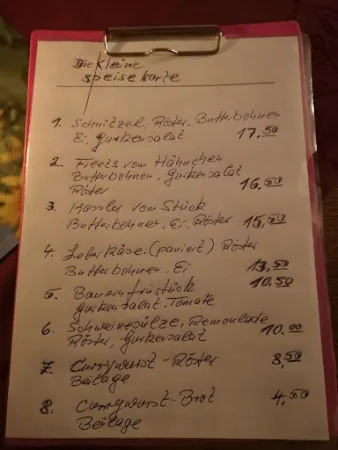 Die kleine
Speisekarte
1. Schnitzel, Röster. Butterbohnen
Ei, Gurkensalat 17,50
2. Filets vom Hähnchen
Butterbohnen, Gurkensalat
Röster 16,50
3. Kassler vom Stück
Butterbohnen, Ei, Röster 15,50
4. Leberkäse (paniert) Röster
Butterbohnen. Ei 13,50
5. Bauernfrüstück 10,50
Gurkensalat. Tomate
6. Schweinesülze, Remoulade
Röster, Gurkensalat 10,00
7. Currywurst - Röster 8,50
Beilage
8. Currywurst - Brot 4,50
Beilage